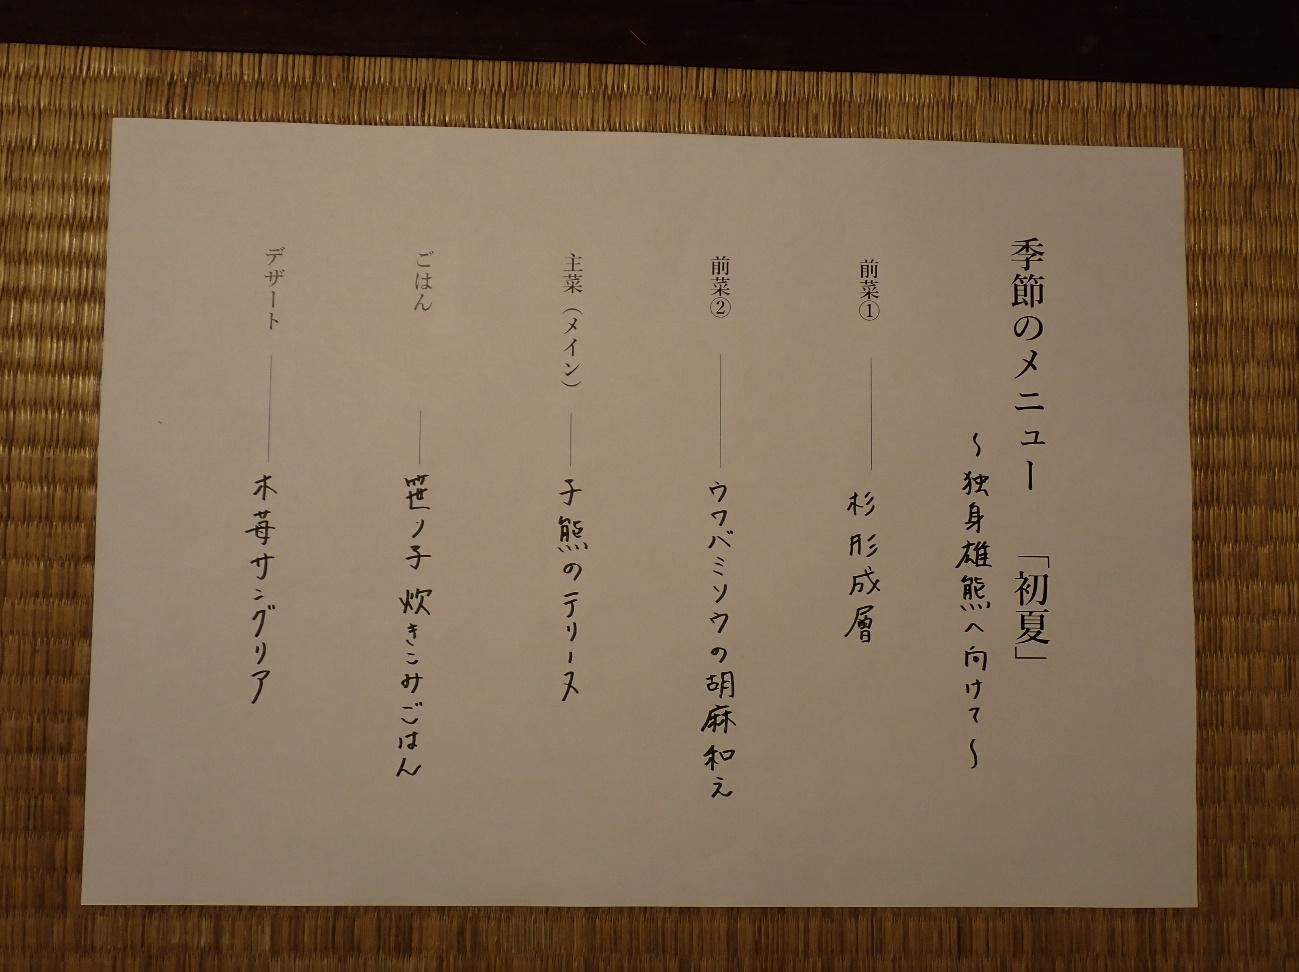 季節のメニュー 「初夏」
～独身雄熊へ向けて～
前菜① 杉形成層
前菜② ウワバミソウの胡麻和え
主菜（メイン） 子熊のテリーヌ
ごはん 笹ノ子炊きこみごはん
デザート 木苺サングリア